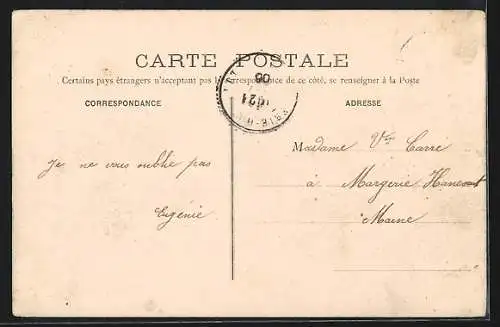 CARTE POSTALE
Certains pays étrangers n'acceptant pas la correspondance de ce côté, se renseigner à la Poste
CORRESPONDANCE
ADRESSE
Je ne vous oublie pas
Eugénie
Madame Vve Carré
à Margerie Hancourt
Marne
21
06